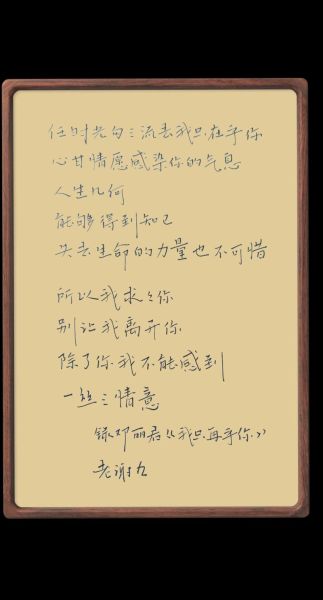 任时光匆匆流去我只在乎你
心甘情愿感染你的气息
人生几何
能够得到知己
失去生命的力量也不可惜
所以我求求你
别让我离开你
除了你我不能感到
一丝丝情意
录邓丽君《我只再乎你》
老谢